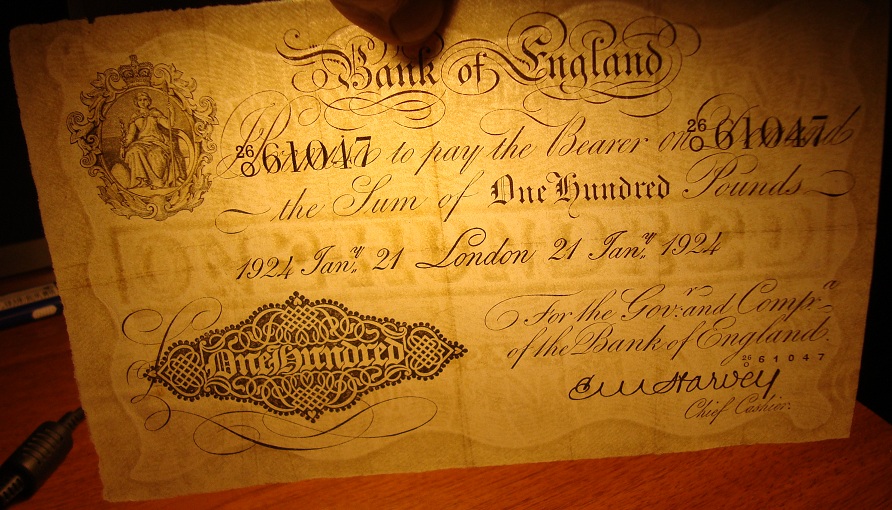 Bank of England
26/O 61047 Promise to pay the Bearer on Demand 26/O 61047
the Sum of One Hundred Pounds
1924 Jany. 21 London 21 Jany. 1924
For the Govr. and Compa.
of the Bank of England.
26/O 61047
£ One Hundred
E M Harvey
Chief Cashier.